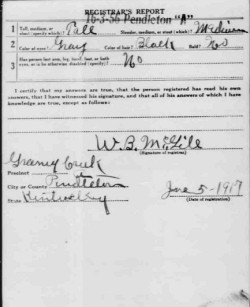 REGISTRAR'S REPORT
16-3-56 Pendleton "A"
1 Tall, medium, or short (specify which)? Tall Slender, medium, or stout (which)? Medium
2 Color of eyes? Gray Color of hair? Black Bald? No
3 Has person lost arm, leg, hand, foot, or both eyes, or is he otherwise disabled (specify)? No
I certify that my answers are true, that the person registered has read his own
answers, that I have witnessed his signature, and that all of his answers of which I have
knowledge are true, except as follows:
W.B. McGill
(Signature of registrar)
Precinct Grassy Creek
City or County Pendleton
State Kentucky
June 5-1917
(Date of registration)